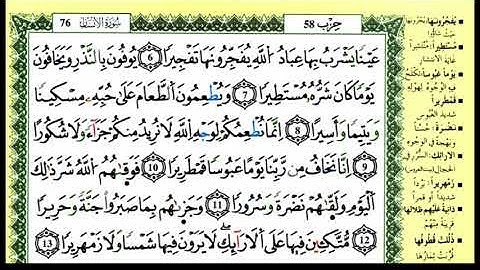 76 سُورَةُ الْإِنسَان
حِزْب 58
عَيْنًا يَشْرَبُ بِهَا عِبَادُ اللَّهِ يُفَجِّرُونَهَا تَفْجِيرًا 6 يُوفُونَ بِالنَّذْرِ وَيَخَافُونَ
يَوْمًا كَانَ شَرُّهُ مُسْتَطِيرًا 7 وَيُطْعِمُونَ الطَّعَامَ عَلَىٰ حُبِّهِ مِسْكِينًا
وَيَتِيمًا وَأَسِيرًا 8 إِنَّمَا نُطْعِمُكُمْ لِوَجْهِ اللَّهِ لَا نُرِيدُ مِنكُمْ جَزَاءً وَلَا شُكُورًا
9 إِنَّا نَخَافُ مِن رَّبِّنَا يَوْمًا عَبُوسًا قَمْطَرِيرًا 10 فَوَقَىٰهُمُ اللَّهُ شَرَّ ذَٰلِكَ
الْيَوْمِ وَلَقَّىٰهُمْ نَضْرَةً وَسُرُورًا 11 وَجَزَىٰهُم بِمَا صَبَرُوا جَنَّةً وَحَرِيرًا
12 مُّتَّكِـِٔينَ فِيهَا عَلَى الْأَرَائِكِ لَا يَرَوْنَ فِيهَا شَمْسًا وَلَا زَمْهَرِيرًا 13
يُفَجِّرُونَهَا
مُسْتَطِيرًا
يَوْمًا عَبُوسًا
قَمْطَرِيرًا
نَضْرَةً
الْأَرَائِكِ
زَمْهَرِيرًا
دَانِيَةً عَلَيْهِمْ ظِلَالُهَا
ذُلِّلَتْ قُطُوفُهَا